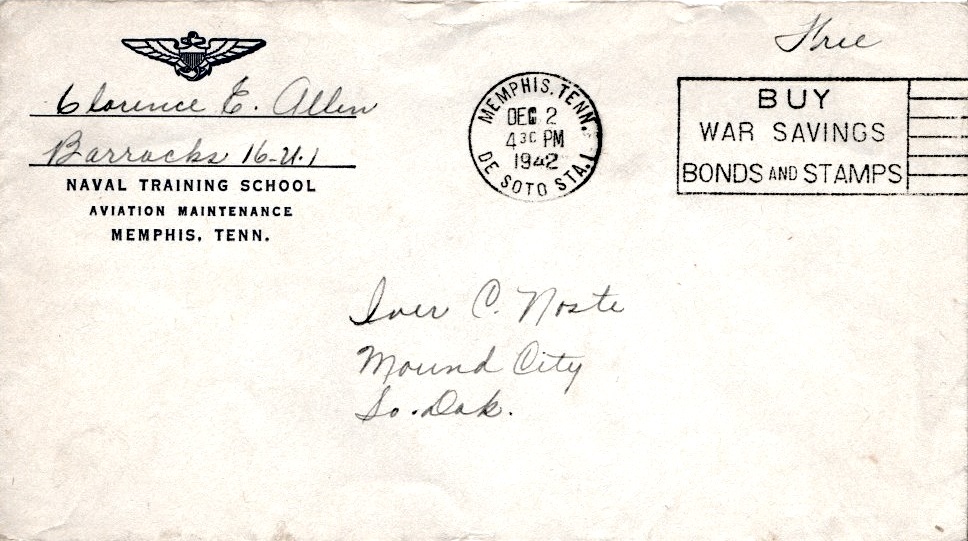 Free
Clarence E. Allen
Barracks 16-U.1
NAVAL TRAINING SCHOOL
AVIATION MAINTENANCE
MEMPHIS, TENN.
MEMPHIS, TENN.
DEC 2
4 30 PM
1942
DE SOTO STA. 1
BUY
WAR SAVINGS
BONDS AND STAMPS
Iver C. Noste
Mound City
So. Dak.